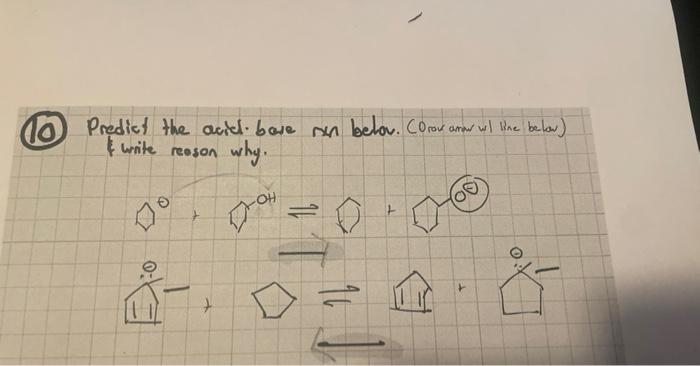 10 Predict the acid-base rxn below. (Draw arrow w/ line below)
& write reason why.
⊖ + OH ⇌ + O⊖
⊖ + ⇌ + ⊖